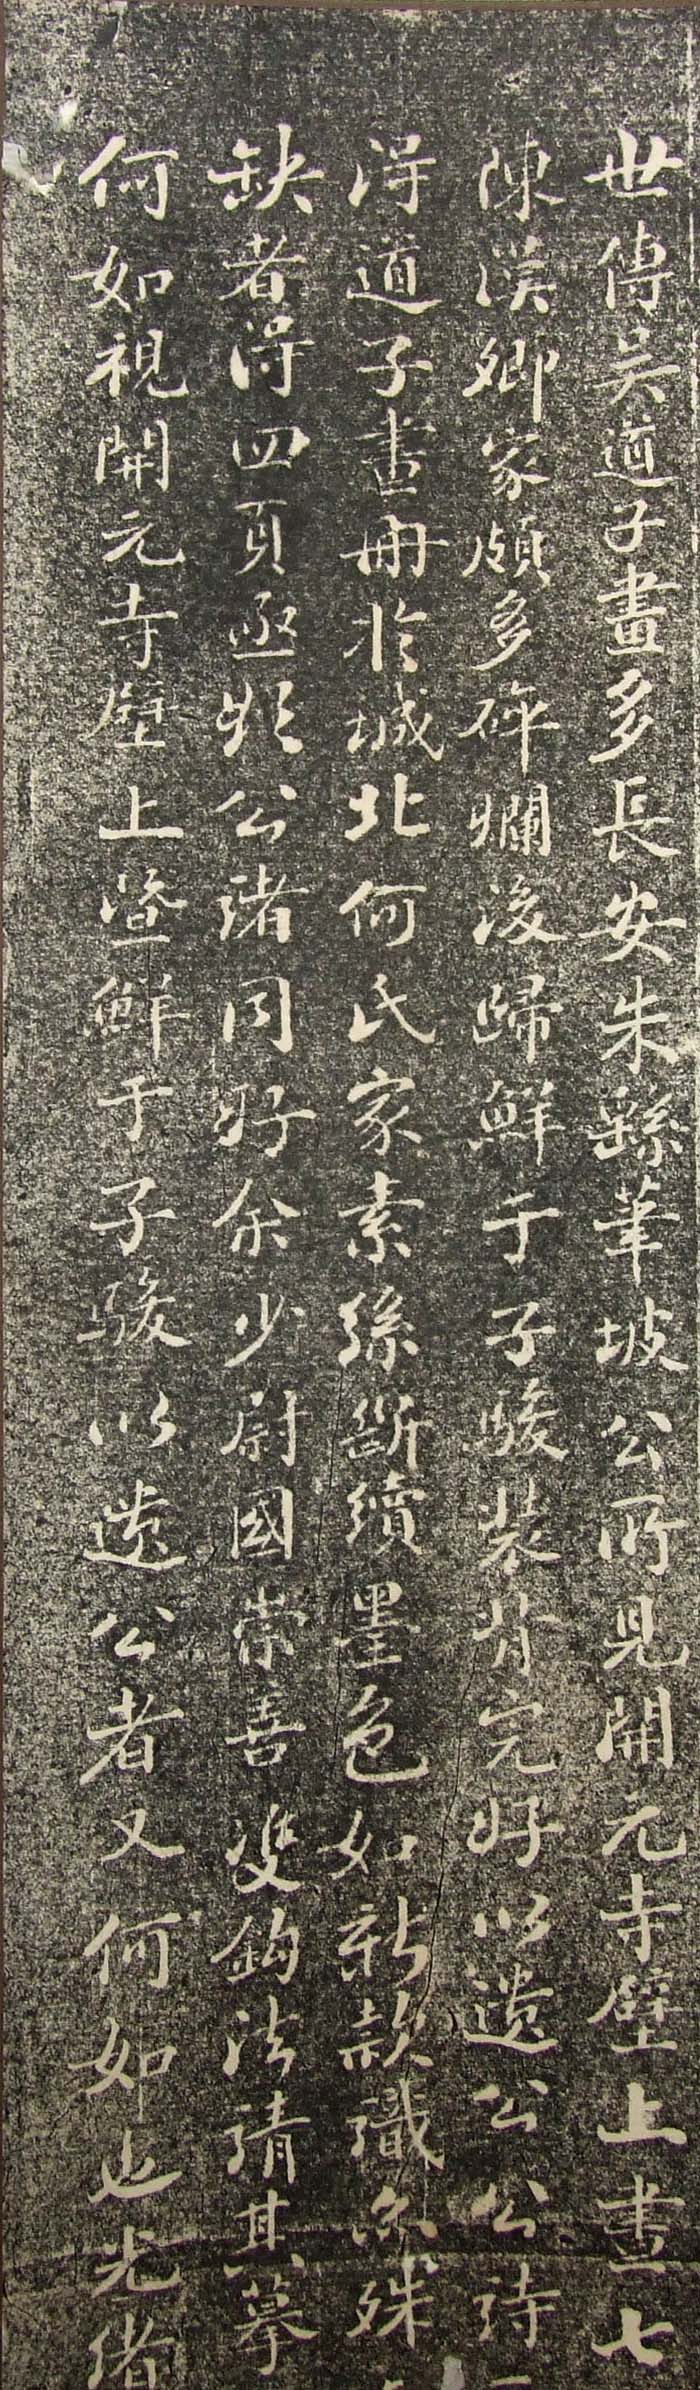 世傳吳道子畫多長安朱繇筆坡公所見開元寺壁上畫七
陳漢卿家頗多碎爛後歸鮮于子駿裝背完好以遺公公詩
得道子畫冊於城北何氏家素絲斷續墨色如新款識亦殊
缺者得四頁亟欲公諸同好余少尉國崇善雙鉤法請其摹
何如視開元寺壁上暨鮮于子駿以遺公者又何如也光緒